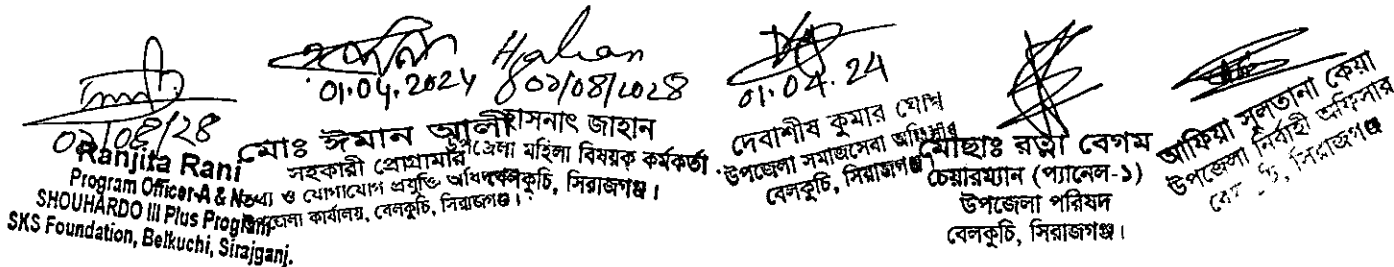 ০১/০৪/২৪
Ranjita Rani
Program Officer-A & N
SHOUHARDO III Plus Program
SKS Foundation, Belkuchi, Sirajganj.
01.04.2024
মোঃ ঈমান আলী
সহকারী প্রোগ্রামার
তথ্য ও যোগাযোগ প্রযুক্তি অধিদপ্তর
উপজেলা কার্যালয়, বেলকুচি, সিরাজগঞ্জ।
Hjahan
০১/০৪/২০২৪
হাসনাৎ জাহান
উপজেলা মহিলা বিষয়ক কর্মকর্তা
বেলকুচি, সিরাজগঞ্জ।
01.04.24
দেবাশীষ কুমার ঘোষ
উপজেলা সমাজসেবা অফিসার
বেলকুচি, সিরাজগঞ্জ
মোছাঃ রত্না বেগম
চেয়ারম্যান (প্যানেল-১)
উপজেলা পরিষদ
বেলকুচি, সিরাজগঞ্জ।
আফিয়া সুলতানা কেয়া
উপজেলা নির্বাহী অফিসার
সিরাজগঞ্জ